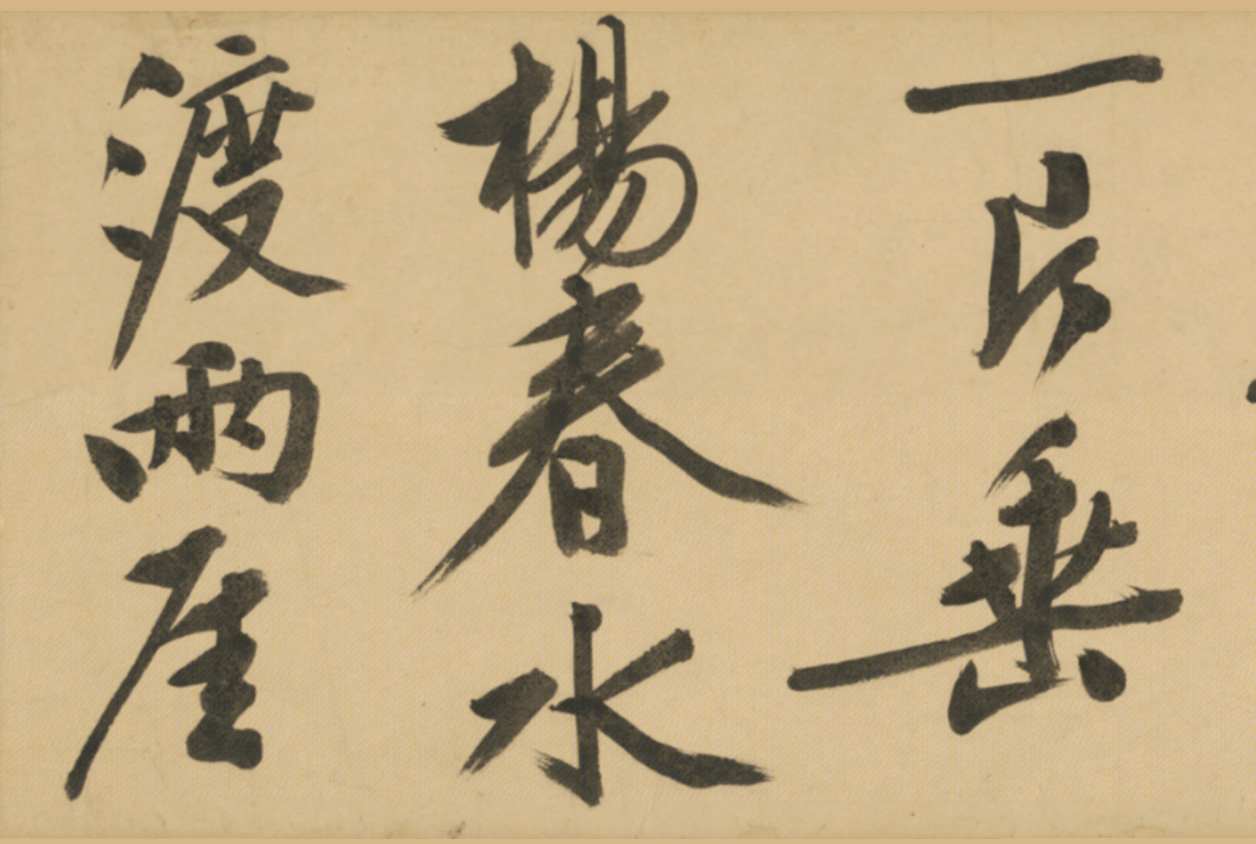 一片垂
楊春水
渡兩厓